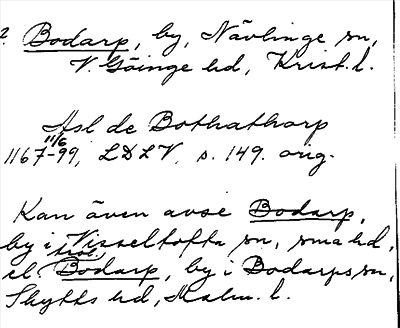 2. Bodarp, by, Nävlinge sn,
V. Göinge hd, Krist. l.
Asl de Bothathorp
11/6
1167-99, LDLV, s. 149. orig.
Kan även avse Bodarp,
by i Visseltofta sn, sma hd,
el. trol. Bodarp, by i Bodarps sn,
Skytts hd, Malm. l.